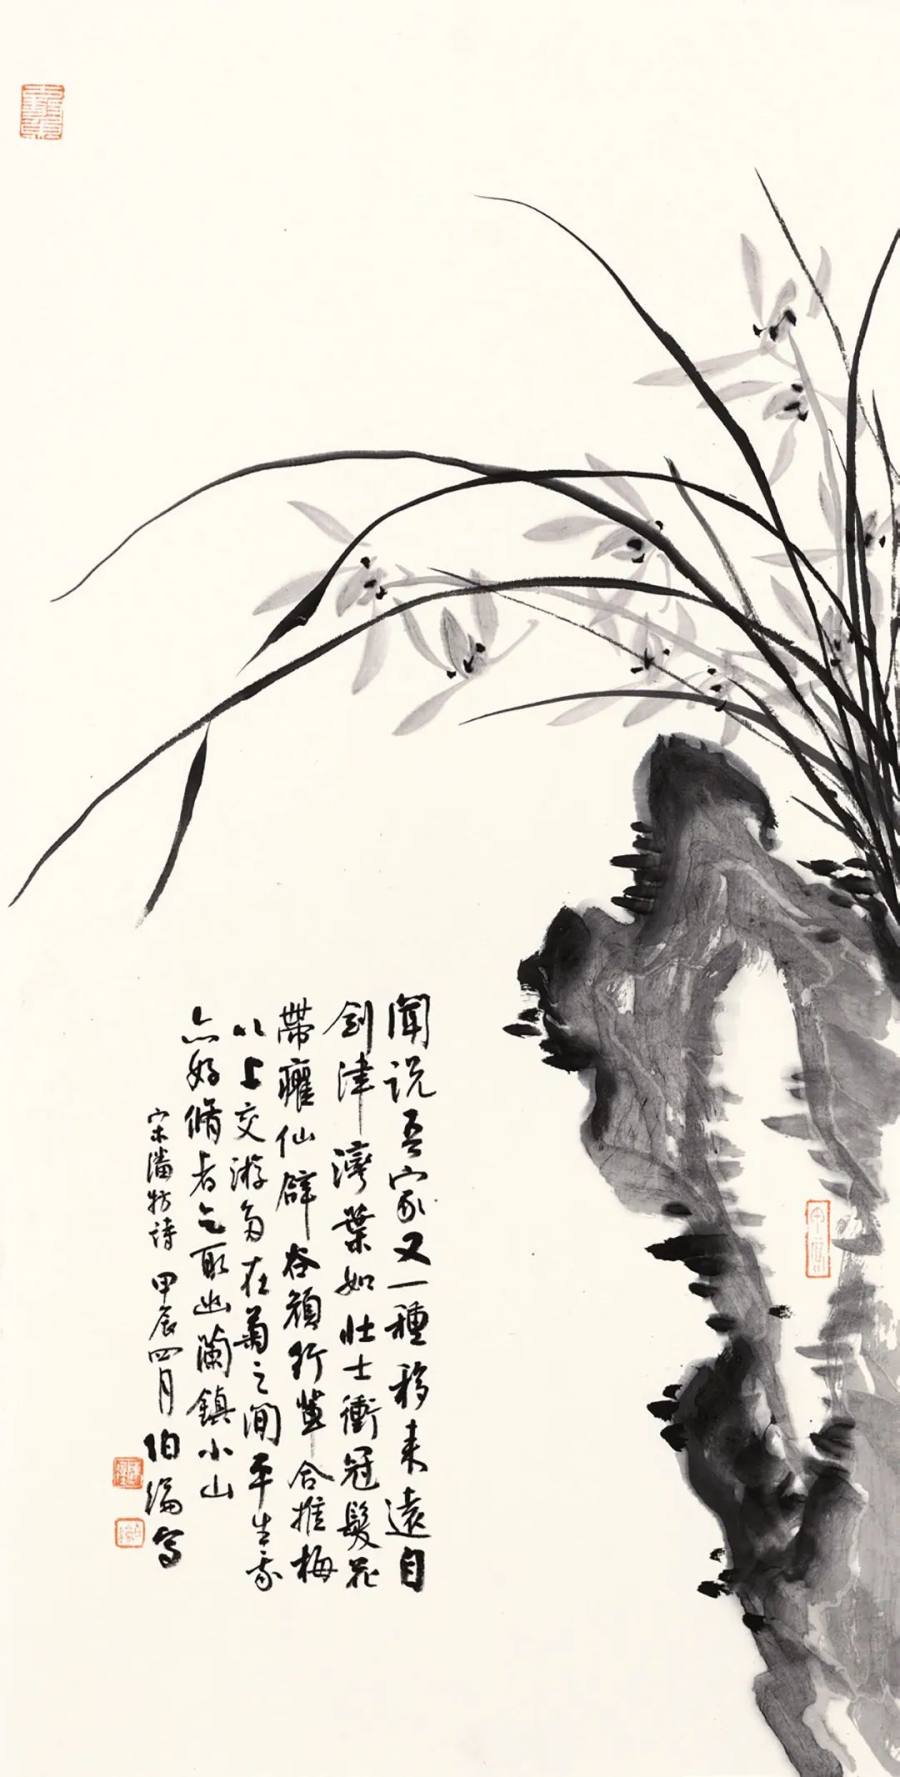 聞说吾家又一種移来遠自
劍津灣葉如壯士衝冠髮花
帶癯仙辟谷顔行輩合推梅
以上交游多在菊之間平生我
亦好脩者乞取幽蘭鎮小山
宋潘牥詩 甲辰四月 伯编写